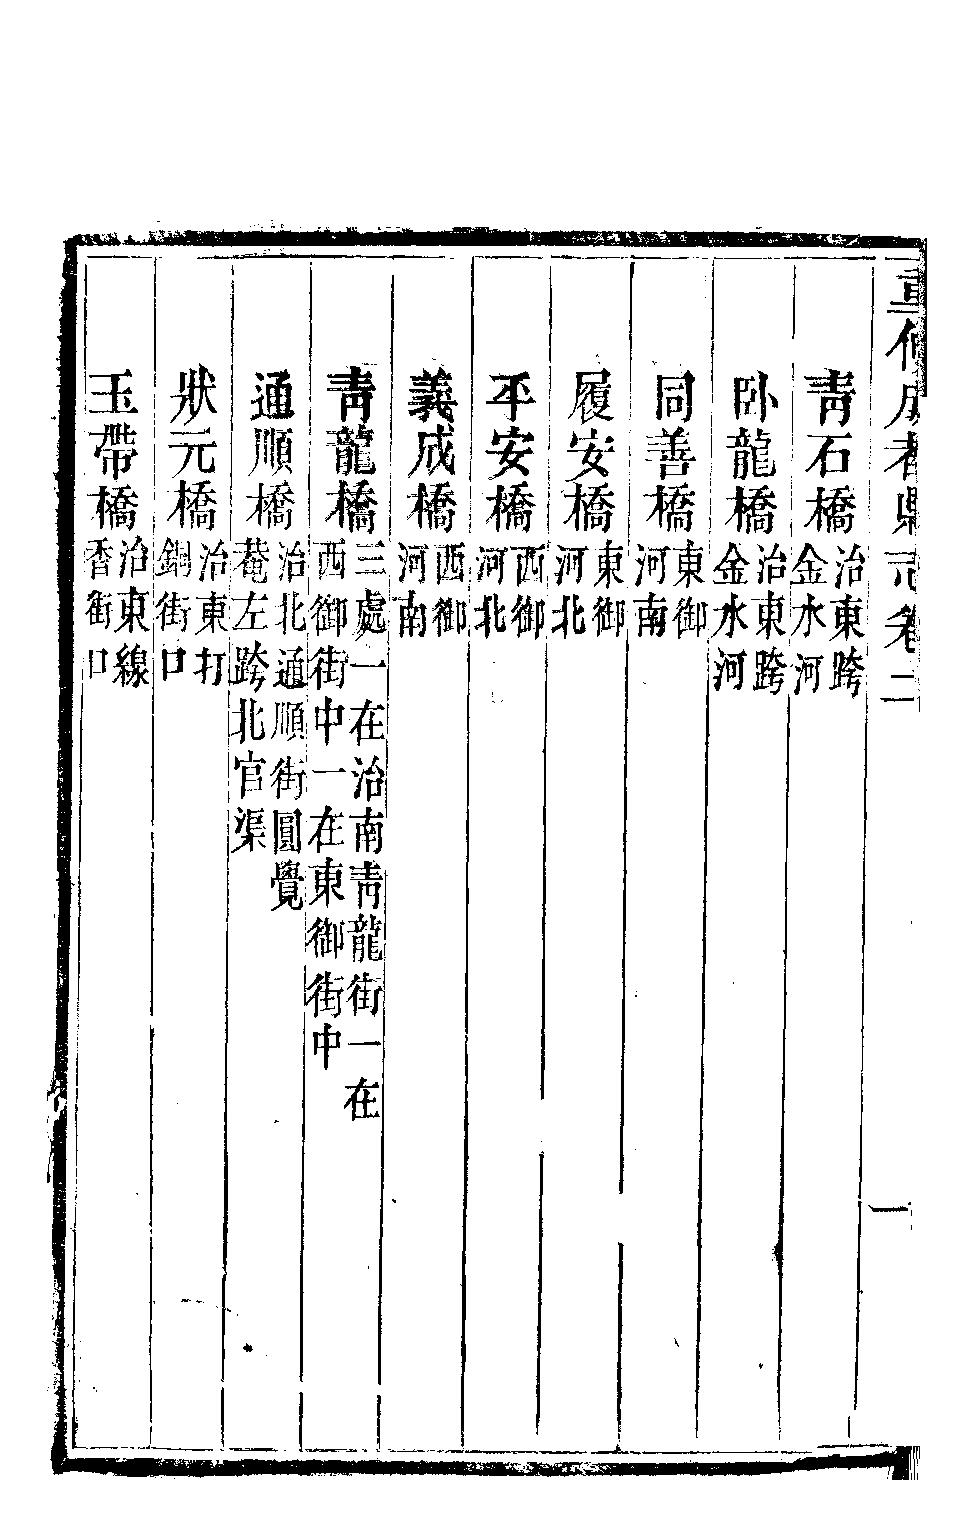 重修成都縣志卷二
一
青石橋治東跨金水河
卧龍橋治東跨金水河
同善橋東御河南
履安橋東御河北
平安橋西御河北
義成橋西御河南
青龍橋三處一在治南青龍街一在西御街中一在東御街中
通順橋治北通順街圓覺菴左跨北官渠
狀元橋治東打銅街口
玉帶橋治東線香街口